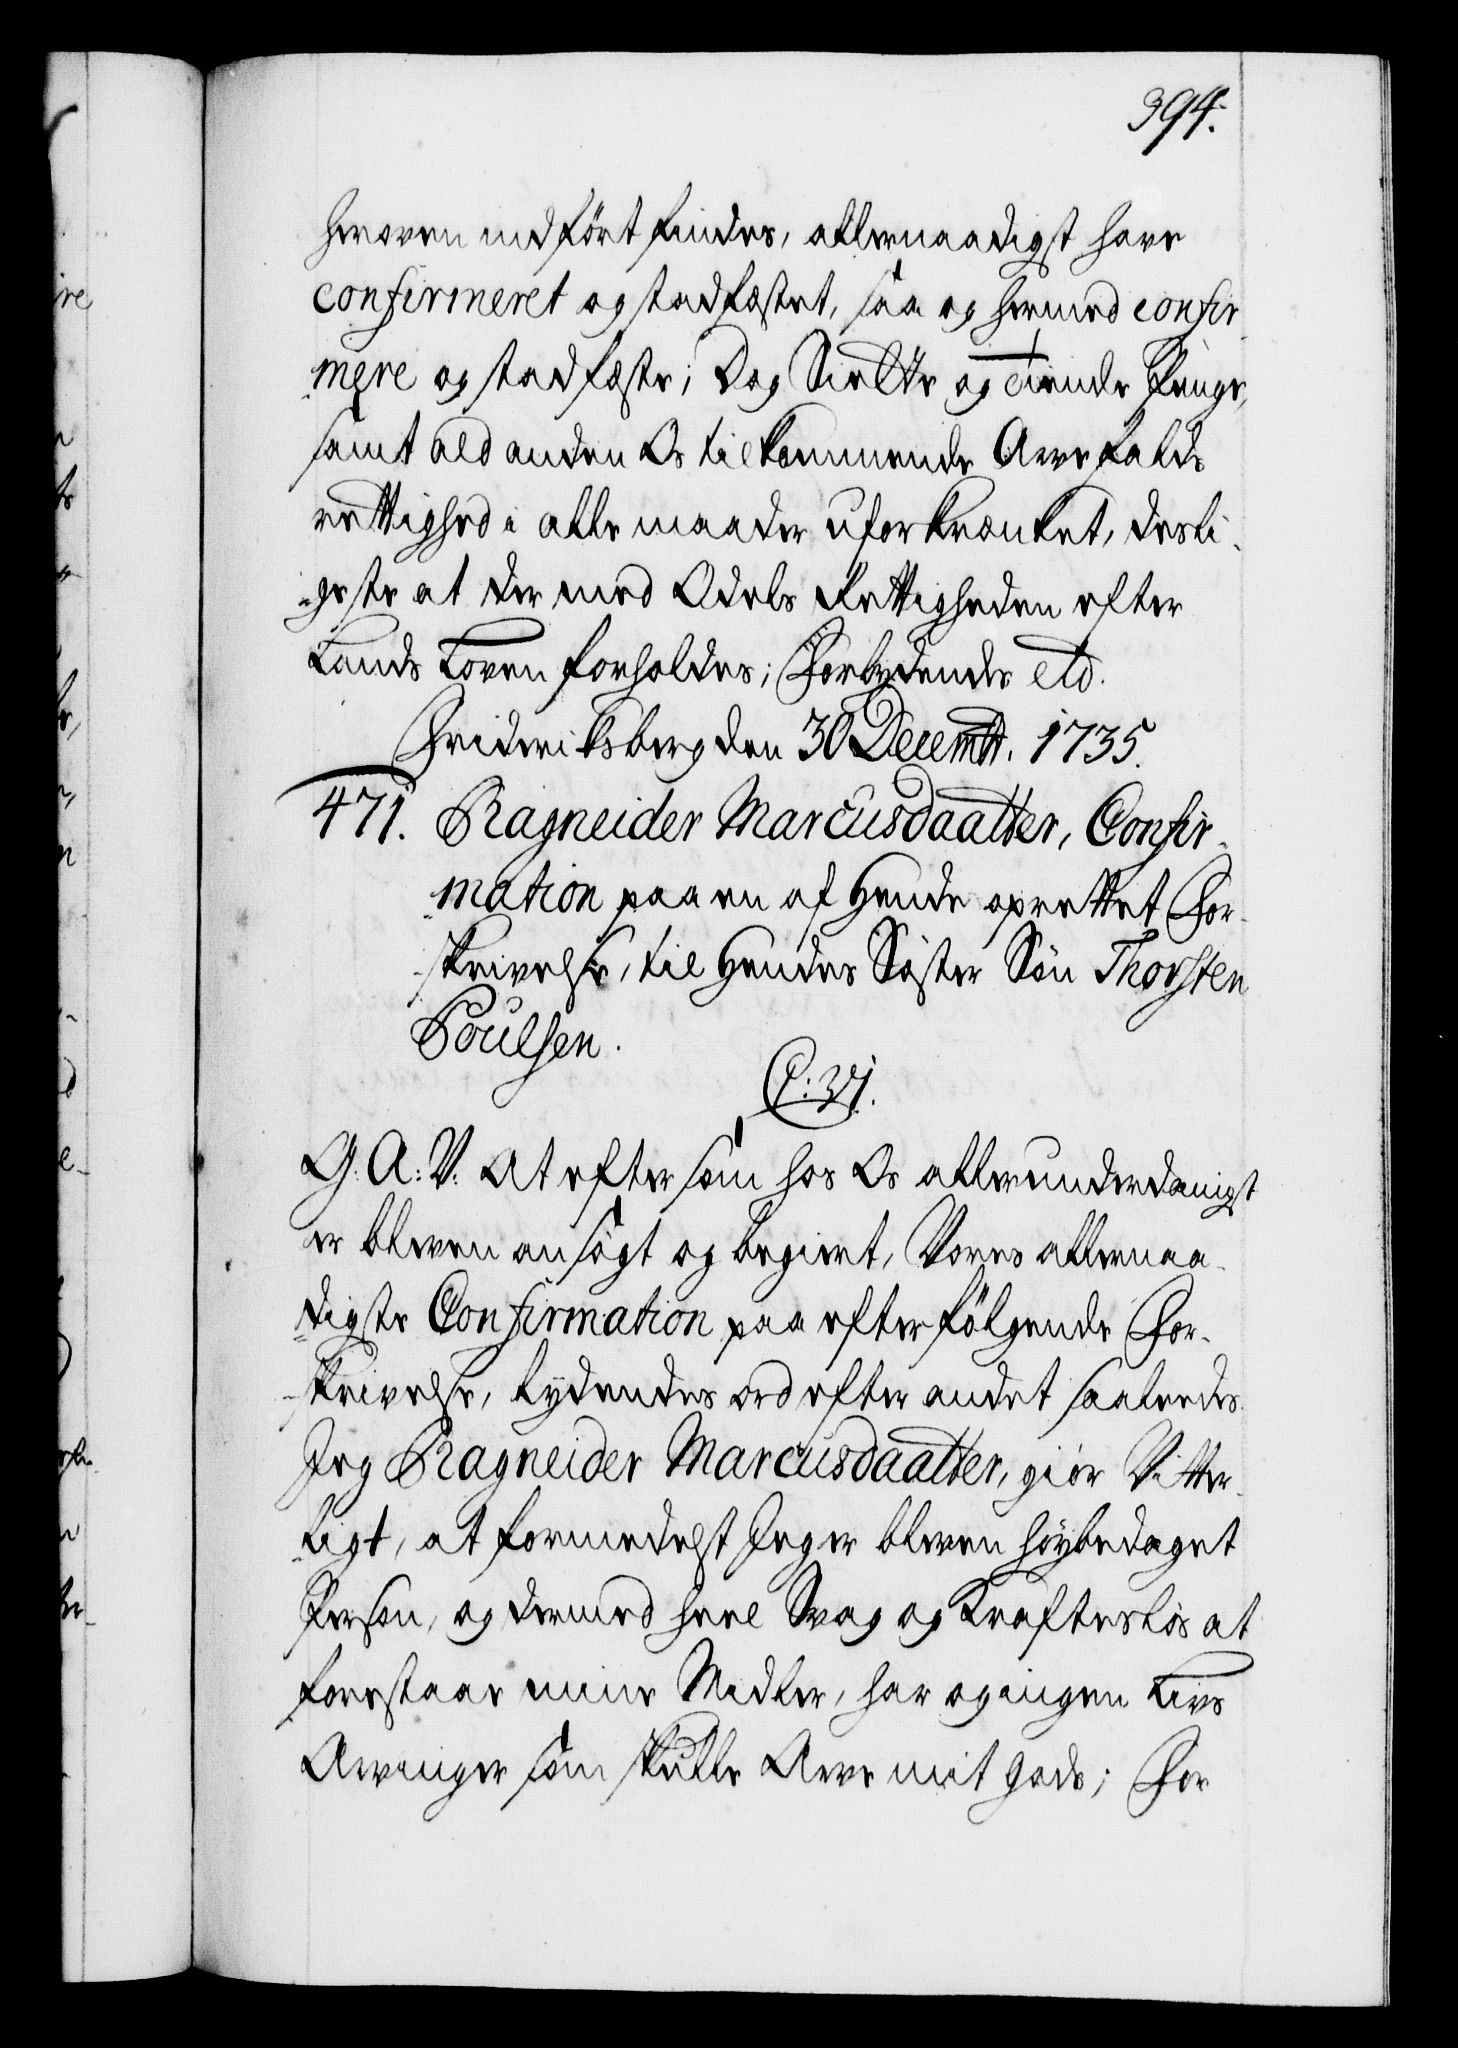 394.
heroven indført findes, allernaadigst have
confirmeret og stadfæstet, saa og hermed confir-
mere og stadfæste; Dog Siette og tiende Penge,
samt ald anden Os tilkommende Arvefalds
rettighed i alle maader uforkrænket, desli-
geste at der med Odels Rettigheden efter
Lands Loven forholdes; Forbydendes etc.
Frideriksberg den 30 Decembr. 1735.
471. Ragneider Marcusdaatter, Confir-
mation paa en af Hende oprettet For-
skrivelse, til Hendes Søster Søn Thorsten
Poulsen.
C: VI.
G: A: V: At eftersom hos Os allerunderdanigst
er bleven ansøgt og begiert, Vores allernaa-
digste Confirmation paa efterfølgende For-
skrivelse, lydendes ord efter andet saaledes.
Jeg Ragneider Marcusdaatter, giør Vitter-
ligt, at formedelst Jeg er bleven høybedaget
Person, og dermed heel Svag og Kræftesløs at
forestaae mine Midler, har og ingen Livs
Arvinger som skulle Arve mit Gods; For